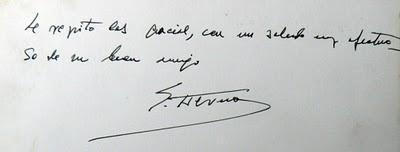 Le repito las gracias, con un saludo muy afectuoso
de su buen amigo